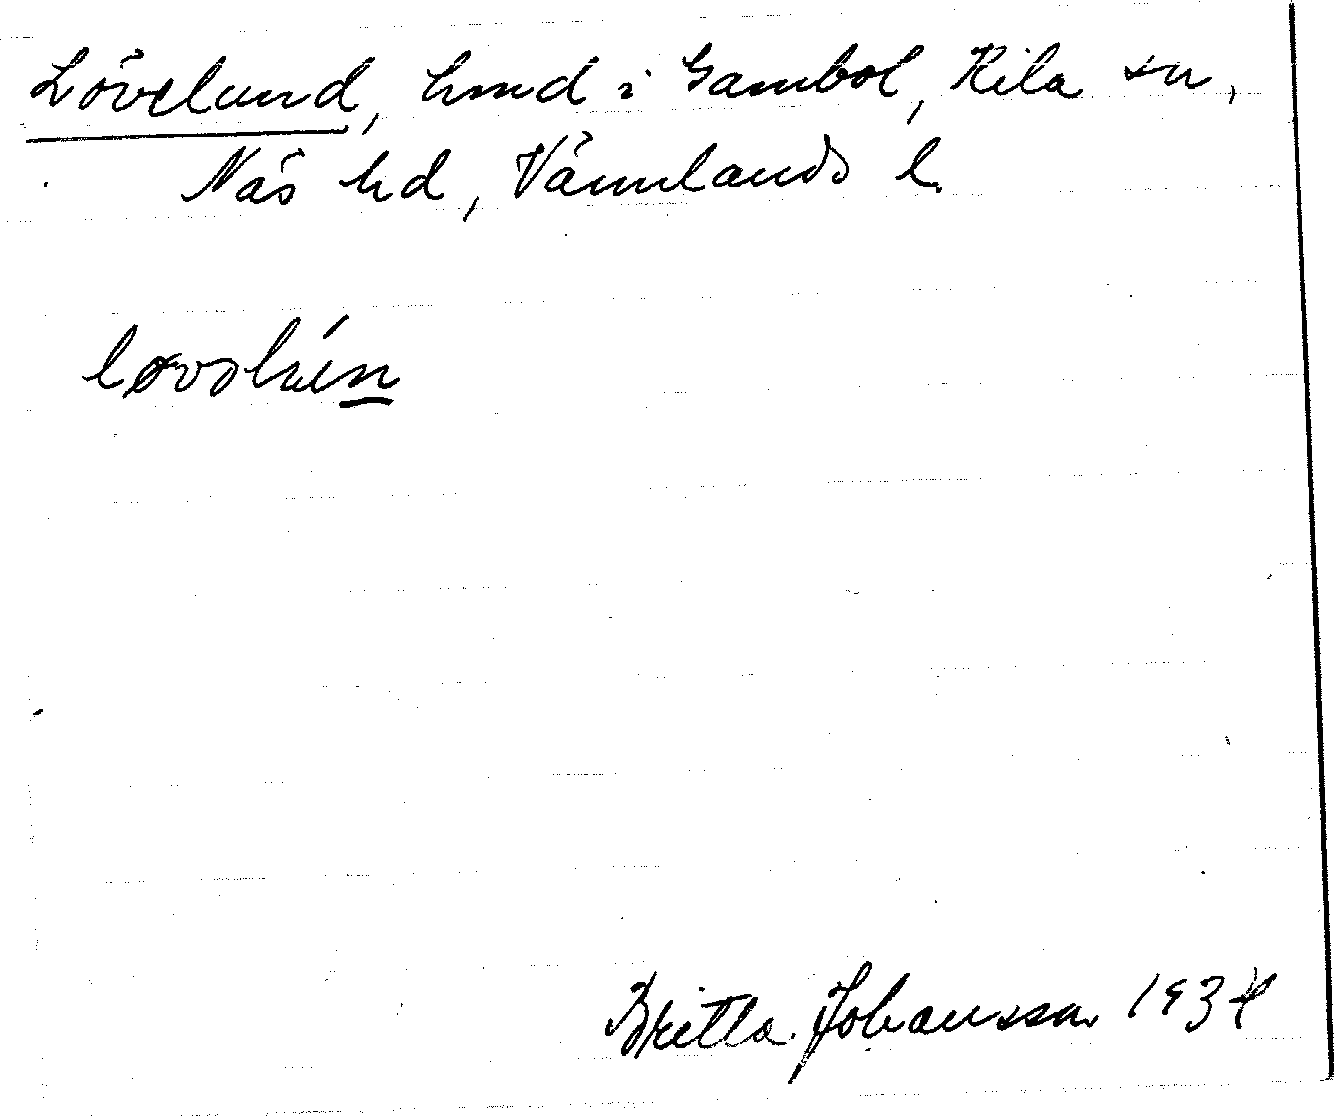 Lövelund, hmd i Gambol, Kila sn,
Näs hd, Värmlands l.
Britta Johansson 1934